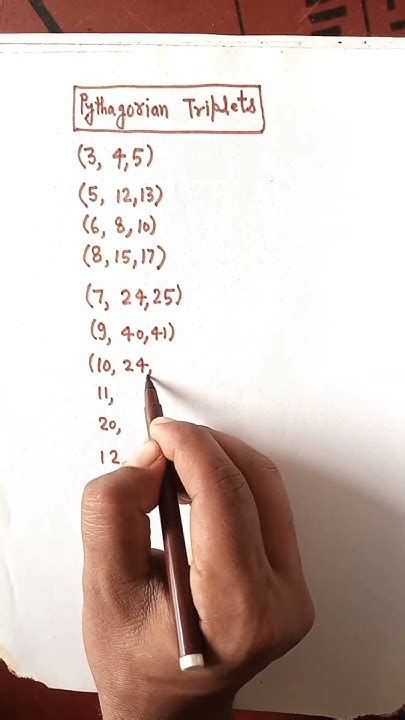 Pythagorian Triplets
(3, 4,5)
(5, 12,13)
(6, 8,10)
(8,15,17)
(7, 24,25)
(9, 40,41)
(10, 24,
11,
20,
12